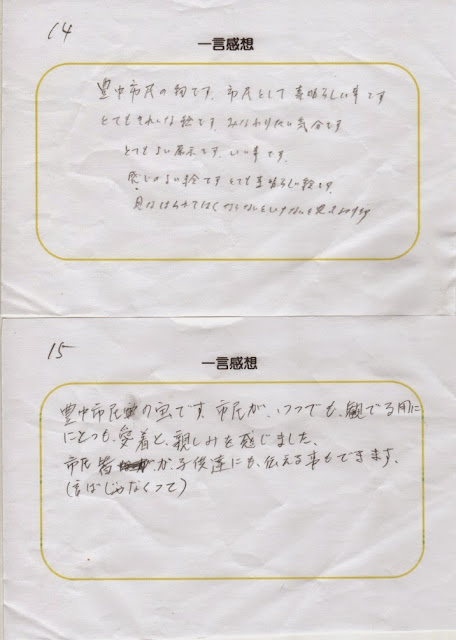 14
一言感想
豊中市民の です。市民として素晴らしい事です
とてもきれいな絵です。みなわりたい気分です
とてもよい展示です。いい事です。
感じのよい絵です とても素晴らしい絵です。
15
一言感想
豊中市民の宝です。市民が、いつでも、観でる用に
にとっも、愛着と、親しみを感じました、
市民皆 が子供達にも、伝える事もできます。
(言ばじゃなくって)